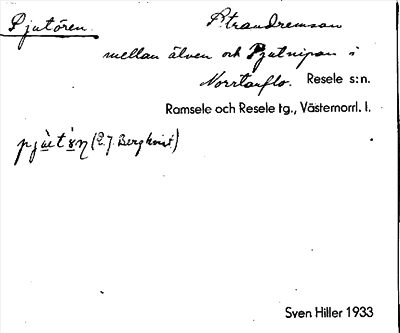 Pjutören. Strandremsan
mellan älven och Pjutnipan i
Norrtanflo. Resele s:n.
Ramsele och Resele tg., Västernorrl. l.
(P.J. Bergkvist)
Sven Hiller 1933